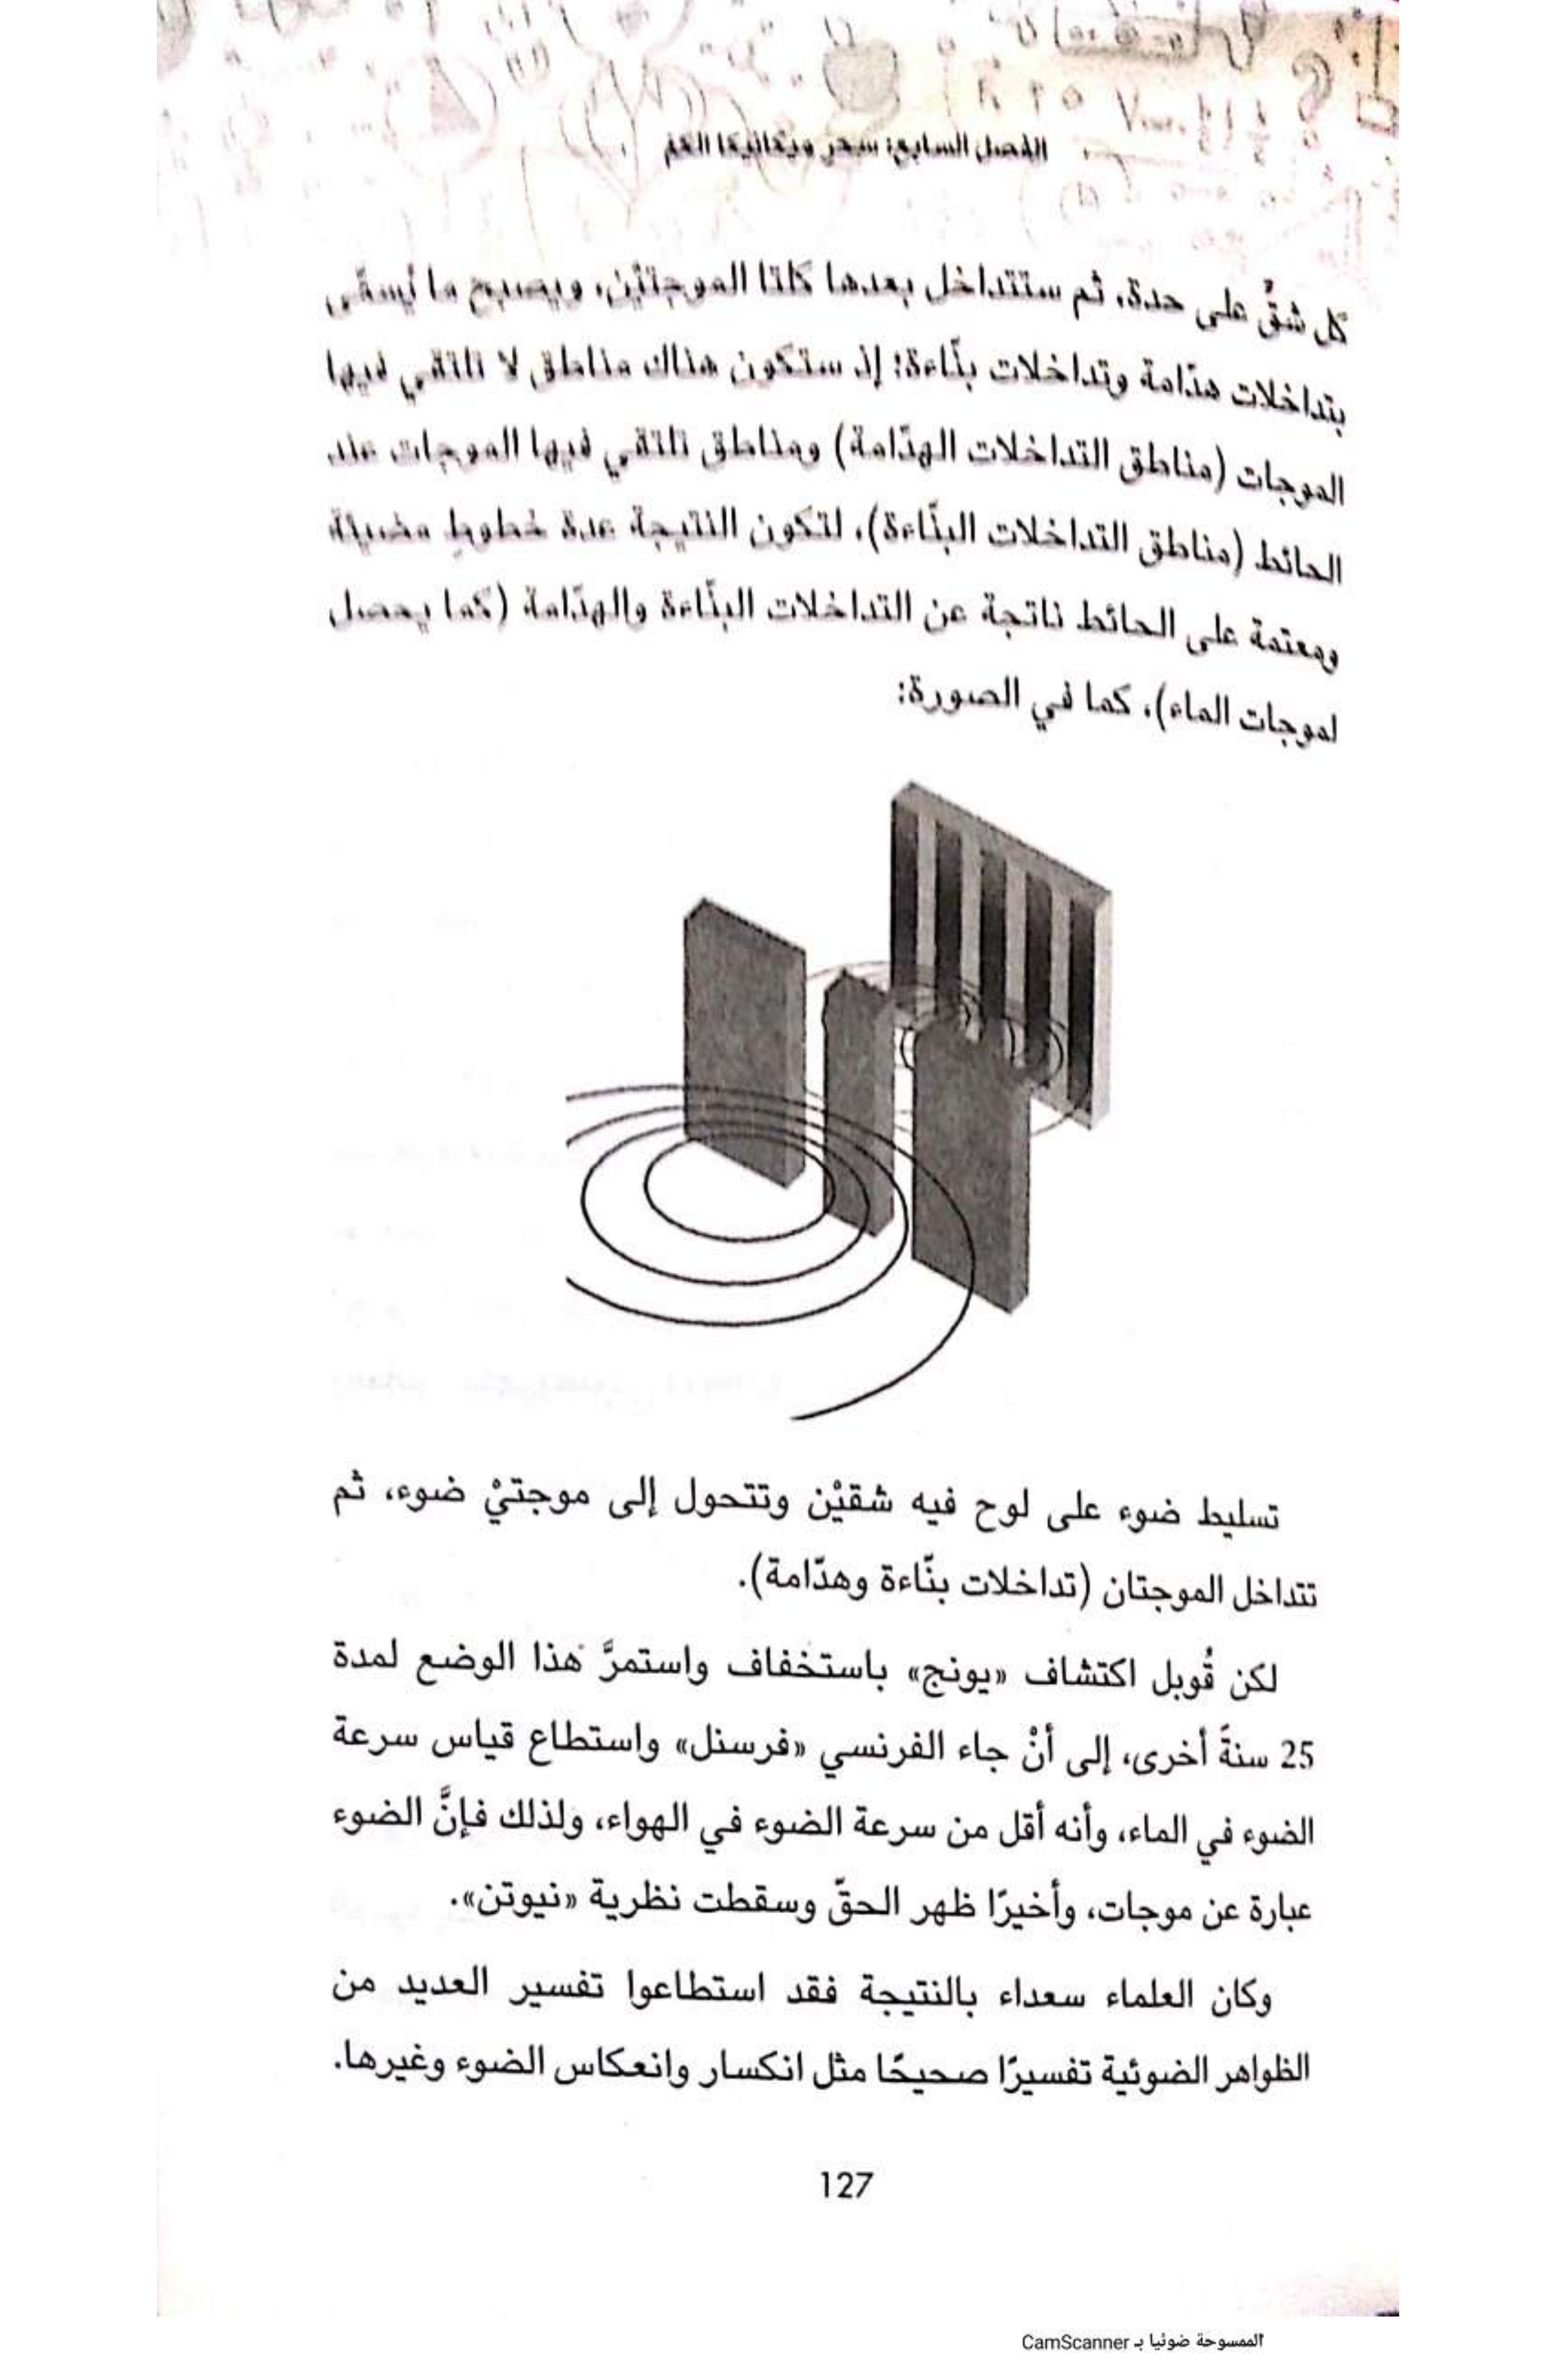 الفصل السابع: سحر ميكانيكا الكم
كل شقٍّ على حدة، ثم ستتداخل بعدها كلتا الموجتيْن، ويصبح ما يُسمَّى
بتداخلات هدّامة وتداخلات بنّاءة؛ إذ ستكون هناك مناطق لا تلتقي فيها
الموجات (مناطق التداخلات الهدّامة) ومناطق تلتقي فيها الموجات عند
الحائط (مناطق التداخلات البنّاءة)، لتكون النتيجة عدة خطوط مضيئة
ومعتمة على الحائط ناتجة عن التداخلات البنّاءة والهدّامة (كما يحصل
لموجات الماء)، كما في الصورة:
تسليط ضوء على لوح فيه شقيْن وتتحول إلى موجتيْ ضوء، ثم
تتداخل الموجتان (تداخلات بنّاءة وهدّامة).
لكن قُوبل اكتشاف «يونج» باستخفاف واستمرَّ هذا الوضع لمدة
25 سنةً أخرى، إلى أنْ جاء الفرنسي «فرسنل» واستطاع قياس سرعة
الضوء في الماء، وأنه أقل من سرعة الضوء في الهواء، ولذلك فإنَّ الضوء
عبارة عن موجات، وأخيرًا ظهر الحقّ وسقطت نظرية «نيوتن».
وكان العلماء سعداء بالنتيجة فقد استطاعوا تفسير العديد من
الظواهر الضوئية تفسيرًا صحيحًا مثل انكسار وانعكاس الضوء وغيرها.
127
الممسوحة ضوئيا بـ CamScanner